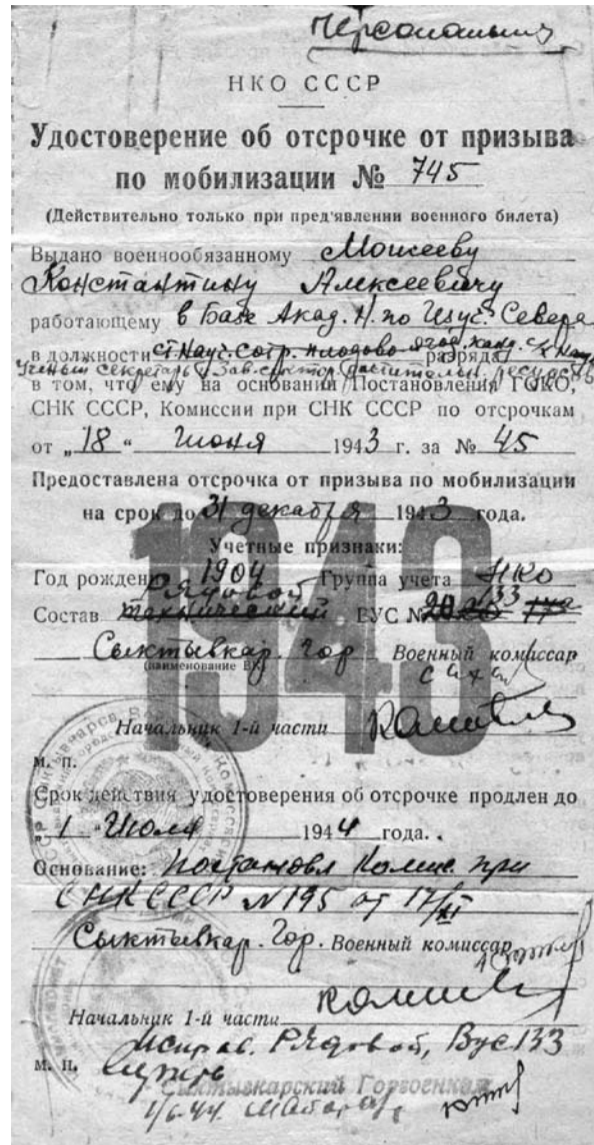 Персонально
НКО СССР
Удостоверение об отсрочке от призыва
по мобилизации № 745
(Действительно только при пред'явлении военного билета)
Выдано военнообязанному Моисееву
Константину Алексеевичу
работающему в Базе Акад. Н. по Изуч. Севера
в должности ст. Науч. Сотр. плодово-ягод. канд. с/х Наук разряда
Ученый секретарь Зав. сектор. растительн. ресурсов
в том, что ему на основании Постановления ГОКО,
СНК СССР, Комиссии при СНК СССР по отсрочкам
от „18“ Июня 1943 г. за № 45
Предоставлена отсрочка от призыва по мобилизации
на срок до 31 декабря 1943 года.
1943
Учетные признаки:
Год рождения 1904 Группа учета НКО
Рядовой
Состав технический ВУС № 133
Сыктывкар. Гор Военный комиссар
(наименование ВК)
Начальник 1-й части
м. п.
Срок действия удостоверения об отсрочке продлен до
„1“ Июля 1944 года.
Основание: Постановл Комис. при
СНК СССР N 195 от 17/XI
Сыктывкар. Гор. Военный комиссар
Начальник 1-й части
Исправ. Рядовой, Вус 133
м. п.
Сыктывкарский Горвоенком
1/6-44